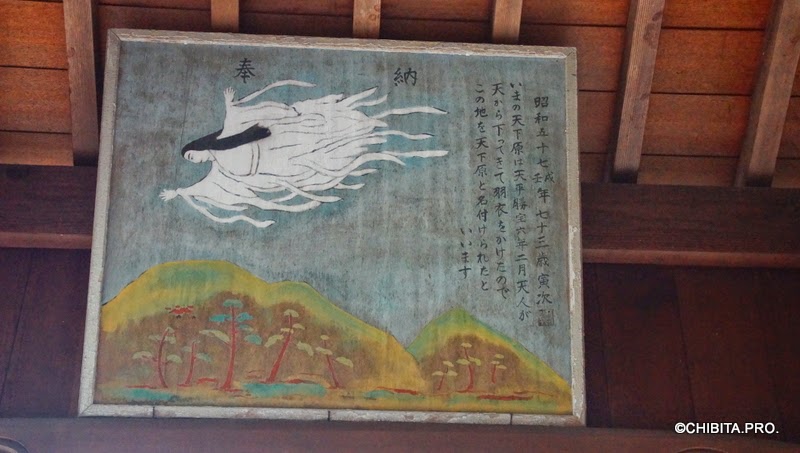 奉納
昭和五十七壬戌年七十三歳寅次
いまの天下原は天平勝宝六年二月天人が
天から下ってきて羽衣をかけたので
この地を天下原と名付けられたと
いいます
©CHIBITA.PRO.